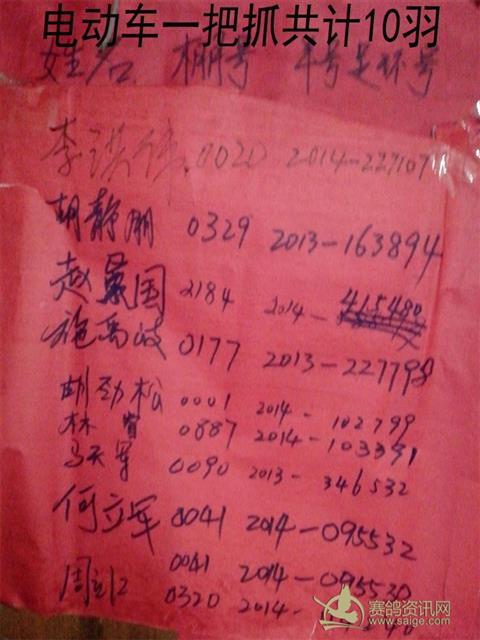 电动车一把抓共计10羽
姓名 棚号 年号足环号
李 0020 2014-227107
胡静 0329 2013-163894
赵 国 2184 2014-415480
施 岐 0177 2013-227798
胡劲松 0001 2014-102799
林 0887 2014-103391
马天军 0090 2013-346532
何立军 0041 2014-095532
0041 2014-095530
周 0320 2014-
赛鸽资讯网
www.saige.com